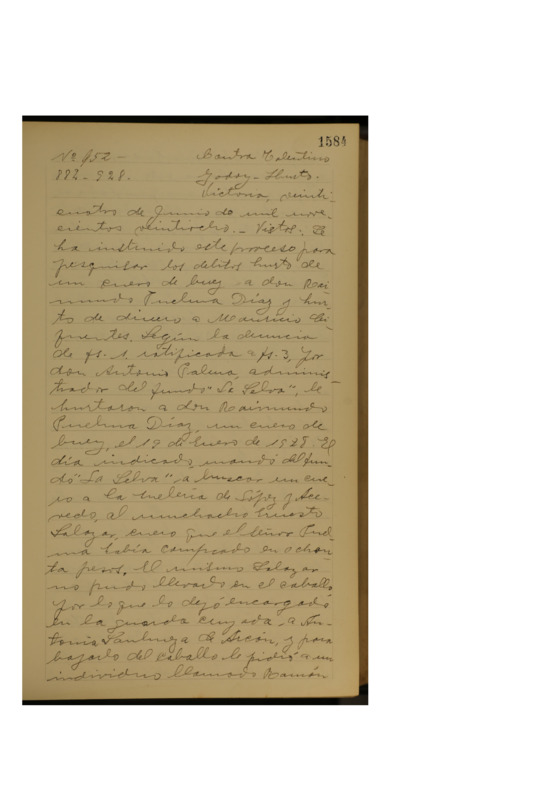 1584
No. 952 - Contra Tolentino
882-928. Godoy - Hurto.
Victoria, veinti-
cuatro de Junio de mil nove-
cientos veintiocho. - Vistos: Se
ha instruido este proceso para
pesquisar los delitos hurto de
un cuero de buey a don Rai-
mundo Puelma Díaz y hur-
to de dinero a Mauricio Ci-
fuentes. Según la denuncia
de fs. 1, ratificada a fs. 3, por
don Antonio Palma, adminis-
trador del fundo "La Selva", le
hurtaron a don Raimundo
Puelma Díaz, un cuero de
buey, el 19 de Enero de 1928. El
día indicado, mandó del fun-
do "La Selva" a buscar un cue-
ro a la suelería de López y Ace-
vedo, al muchacho Ernesto
Salazar, cuero que el señor Puel-
ma había comprado en ochen-
ta pesos. El mismo Salazar
no pudo llevarlo en el caballo
por lo que lo dejó encargado
en la guarda cruzada a An-
tonia de Ascán, y para
bajarlo del caballo le pidió a un
individuo llamado Ramón